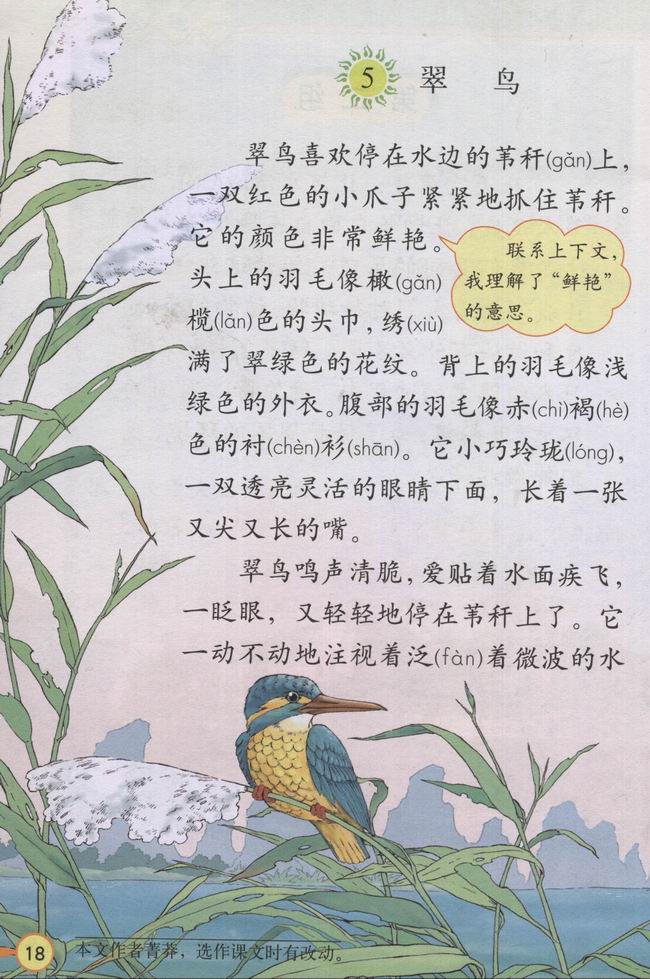 5 翠 鸟
翠鸟喜欢停在水边的苇秆(gǎn)上，
一双红色的小爪子紧紧地抓住苇秆。
它的颜色非常鲜艳。
头上的羽毛像橄(gǎn)
榄(lǎn)色的头巾，绣(xiù)
满了翠绿色的花纹。背上的羽毛像浅
绿色的外衣。腹部的羽毛像赤(chì)褐(hè)
色的衬(chèn)衫(shān)。它小巧玲珑(lóng)，
一双透亮灵活的眼睛下面，长着一张
又尖又长的嘴。
联系上下文，
我理解了“鲜艳”
的意思。
翠鸟鸣声清脆，爱贴着水面疾飞，
一眨眼，又轻轻地停在苇秆上了。它
一动不动地注视着泛(fàn)着微波的水
18
本文作者菁莽，选作课文时有改动。